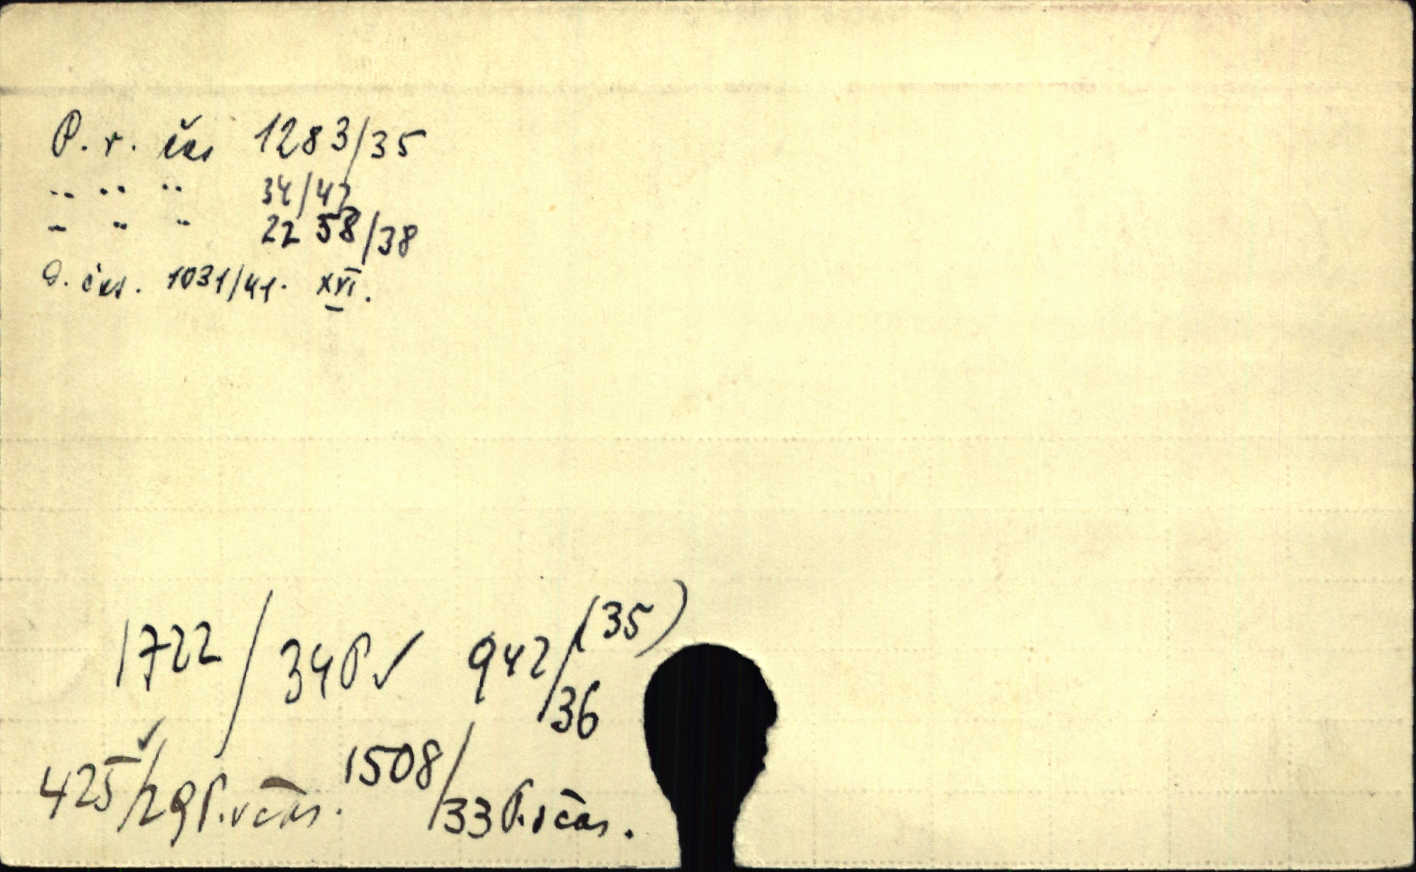 P. r. čas 1283/35
" " " 34/42
" " " 2258/38
O. čas. 1031/41. XVI.
1722/34 P ✓ 942/(35) 36
425 ✓/29 P. v čas. 1508/33 P. v čas.